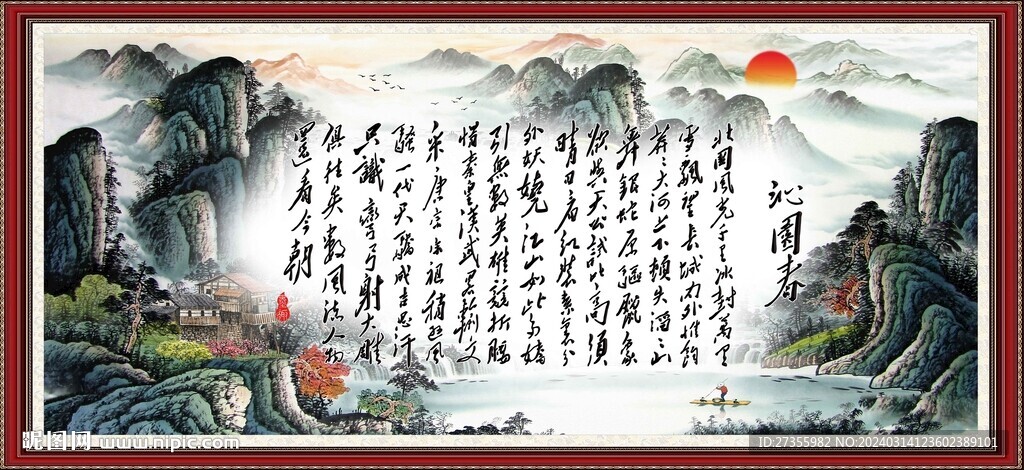 沁園春
北國風光千里冰封萬里
雪飄望長城內外惟餘
莽々大河上下頓失滔々山
舞銀蛇原驅臘象
欲與天公試比高須
晴日看紅裝素裹分
外妖嬈江山如此多嬌
引無數英雄競折腰
惜秦皇漢武略輸文
采唐宗宋祖稍遜風
騷一代天驕成吉思汗
只識彎弓射大雕
俱往矣數風流人物
還看今朝
昵图网 www.nipic.com
ID:27355982 NO:20240314123602389101